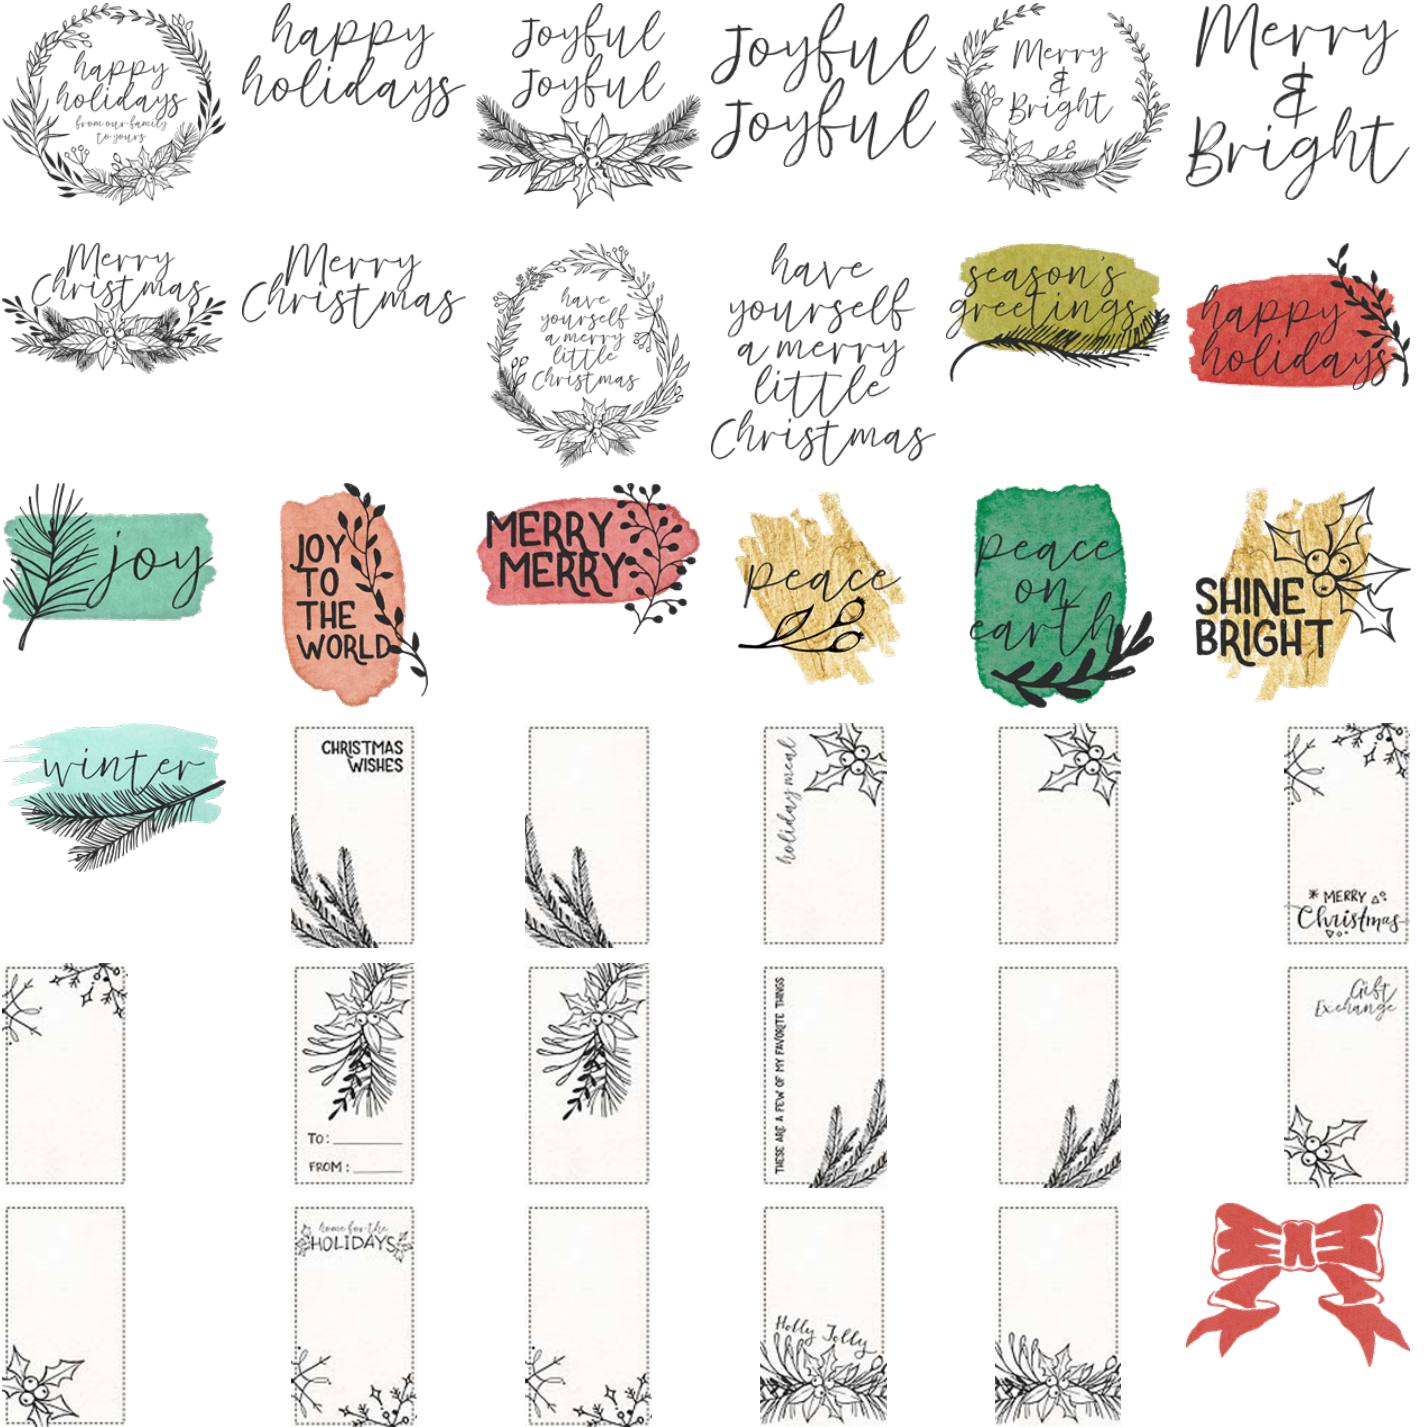 happy
holidays
from our family
to yours
happy
holidays
Joyful
Joyful
Joyful
Joyful
Merry
&
Bright
Merry
&
Bright
Merry
Christmas
Merry
Christmas
have
yourself
a merry
little
Christmas
have
yourself
a merry
little
Christmas
season's
greetings
happy
holidays
joy
JOY
TO
THE
WORLD
MERRY
MERRY
peace
peace
on
earth
SHINE
BRIGHT
winter
CHRISTMAS
WISHES
holiday meal
MERRY
Christmas
TO:
FROM:
THESE ARE A FEW OF MY FAVORITE THINGS
Gift
Exchange
home for the
HOLIDAYS
Holly Jolly